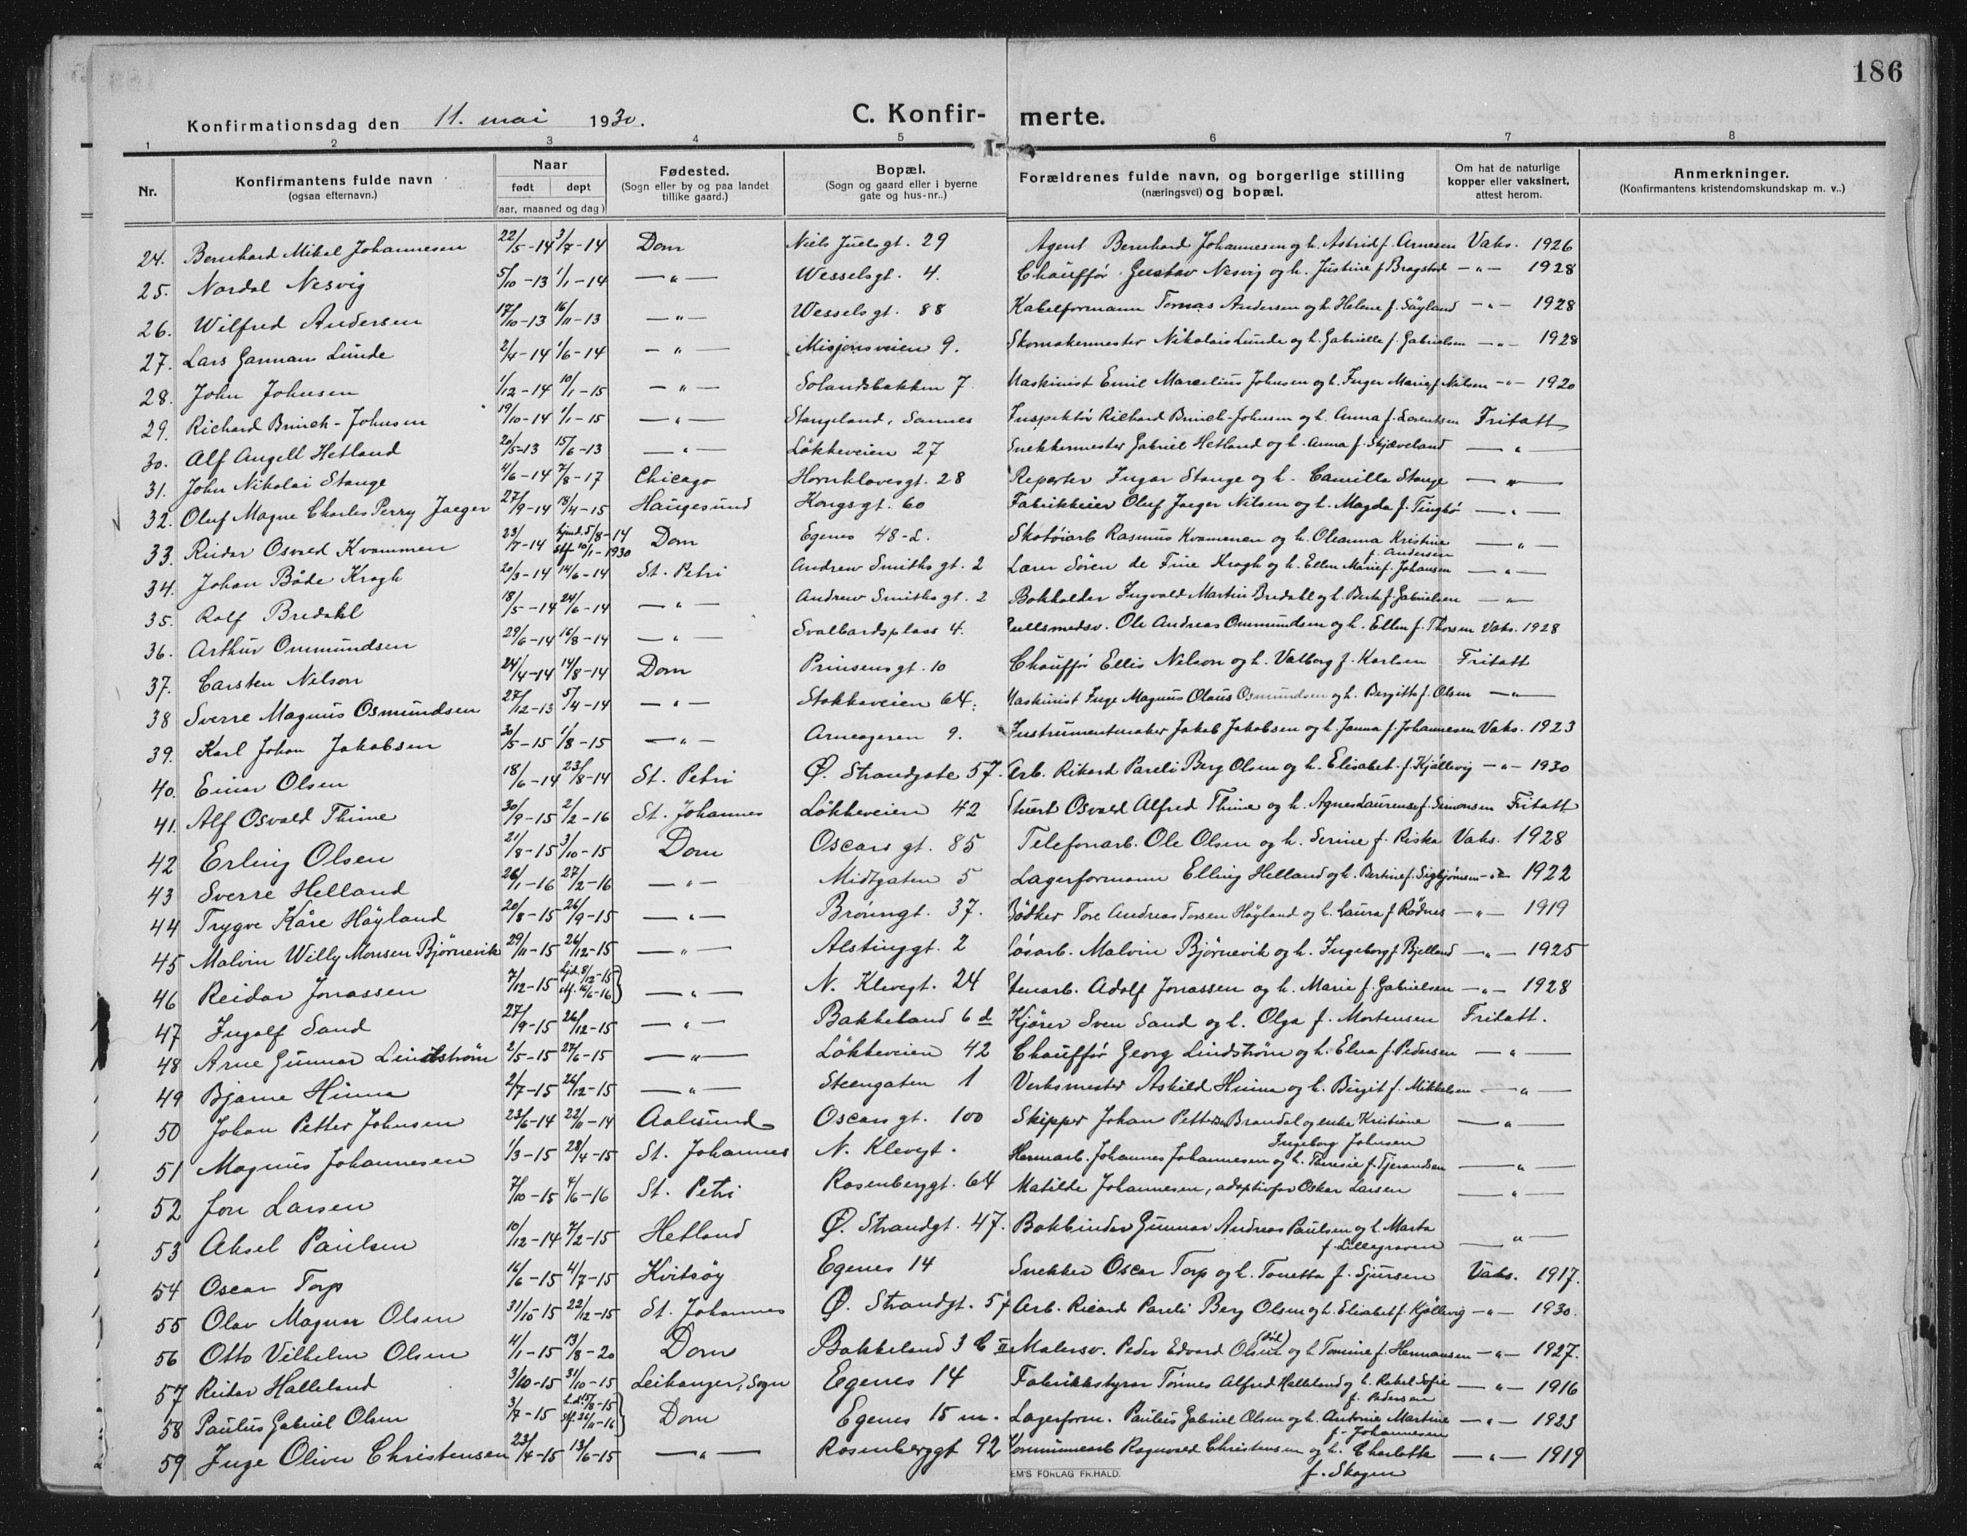 186
Konfirmationsdag den 11. mai 1930. C. Konfirmerte.
1 2 3 4 5 6 7 8
Nr. Konfirmantens fulde navn (ogsaa efternavn.) Naar født døpt (aar, maaned og dag) Fødested. (Sogn eller by og paa landet tillike gaard.) Bopæl. (Sogn og gaard eller i byerne gate og hus-nr..) Forældrenes fulde navn, og borgerlige stilling (næringsvei) og bopæl. Om hat de naturlige kopper eller vaksinert, attest herom. Anmerkninger. (Konfirmantens kristendomskundskap m. v..)
24. Bernhard Mikal Johannesen 22/5-14 3/7-14 Dom Niels Juels gt. 29 Agent Bernhard Johannesen og h. Astrid f. Arnesen Vaks. 1926
25. Nordal Nesvig 5/10-13 1/1-14 —"— Wessels gt. 4. Chauffør Gustav Nesvig og h. Justine f. Bragstad —"— 1928
26. Wilfred Andersen 17/10-13 16/11-13 —"— Wessels gt. 88 Kabelformann Tomas Andersen og h. Helene f. Søyland —"— 1928
27. Lars Garman Lunde 2/4-14 1/6-14 —"— Misjonsveien 9. Skomakermester Nikolai Lunde og h. Gabrielle f. Gabrielsen —"— 1928
28. John Johnsen 1/12-14 10/1-15 —"— Solandsbakken 7 Maskinist Emil Marselius Johnsen og h. Inger Marie f. Nilsen —"— 1920
29. Richard Brinch-Johnsen 19/10-14 1/1-15 —"— Stangeland, Sannes Inspektør Richard Brinch-Johnsen og h. Anna f. Lorentsen Fritatt
30. Alf Angell Hetland 20/5-13 15/6-13 —"— Løkkeveien 27 Snekkermester Gabriel Hetland og h. Anna f. Skjæveland —"—
31. John Nikolai Stange 4/6-14 7/8-17 Chicago Hornkloves gt. 28 Reporter Ingar Stange og h. Camilla Stange —"—
32. Oluf Magne Charles Perry Jaeger 27/9-14 18/4-15 Haugesund Kongsgt. 60 Fabrikkeier Oluf Jaeger Nilsen og h. Magda f. Tingbø —"—
33. Reidar Osvald Kvammen 23/7-14 hjmd. 5/8-14 stf. 10/1-1930 Dom Egenes 48-d. Skotøiarb Rasmus Kvammen og h. Oleanna Kristine f. Andersen —"—
34. Johan Både Krogh 20/3-14 14/6-14 St. Petri Andrew Smiths gt. 2 Lærer Søren de Fine Krogh og h. Ellen Marie f. Johansen —"—
35. Rolf Bredahl 18/5-14 24/6-14 —"— Andrew Smiths gt. 2 Bokholder Ingvald Martin Bredahl og h. Berta f. Gabrielsen —"—
36. Arthur Ommundsen 29/6-14 16/8-14 —"— Svalbardsplass 4. Gullsmedsv. Ole Andreas Ommundsen og h. Ellen f. Thorsen Vaks. 1928
37. Carsten Nelson 24/4-14 14/8-14 Dom Prinsensgt. 10 Chauffør Ellis Nelson og h. Valborg f. Karlsen Fritatt
38 Sverre Magnus Osmundsen 27/12-13 5/4-14 —"— Stokkaveien 64. Maskinist Inge Magnus Olaus Osmundsen og h. Bergitte f. Olsen —"—
39. Karl Johan Jakobsen 30/5-15 1/8-15 —"— Arneageren 9. Instrumentmaker Jakob Jakobsen og h. Janna f. Johannesen Vaks. 1923
40. Einar Olsen 18/6-14 23/8-14 St. Petri Ø. Strandgate 57. Arb. Rikard Pareli Berg Olsen og h. Elisabet f. Kjøllevig —"— 1930
41. Alf Osvald Thime 30/9-15 2/2-16 St. Johannes Løkkeveien 42 Stuert Osvald Alfred Thime og h. Agnes Laurense f. Simonsen Fritatt
42 Erling Olsen 21/8-15 3/10-15 Dom Oscars gt. 85 Telefonarb. Ole Olsen og h. Serine f. Riska Vaks. 1928
43 Sverre Helland 26/1-16 27/2-16 —"— Midtgaten 5 Lagerformann Elling Helland og h. Bertine f. Sigbjørnsen —"— 1922
44 Trygve Kåre Høyland 20/8-15 26/9-15 —"— Brønngt. 37. Bødker Tore Andreas Torsen Høyland og h. Laura f. Rødnes —"— 1919
45 Malvin Willy Monsen Bjørnevik 29/11-15 26/12-15 —"— Alstinggt. 2 Løsarb. Malvin Bjørnevik og h. Ingeborg f. Bjelland —"— 1925
46 Reidar Jonassen 7/12-15 hjd. 8/12-15 stf. 12/6-16 —"— N. Klevegt. 24 Stenarb. Adolf Jonassen og h. Marie f. Gabrielsen —"— 1928
47 Ingolf Sand 27/9-15 26/12-15 —"— Bakkeland 6 d Kjører Sven Sand og h. Olga f. Mortensen Fritatt.
48 Arne Gunnar Lindstrøm 2/5-15 27/6-15 —"— Løkkeveien 42 Chauffør Georg Lindstrøm og h. Elna f. Pedersen —"—
49 Bjarne Hinna 2/7-15 26/12-15 —"— Steengaten 1 Verksmester Askild Hinna og h. Birgit f. Mikkelsen —"—
50 Johan Petter Johnsen 23/6-14 22/11-14 Aalesund Oscars gt. 100 Skipper Johan Petter Brandal og enke Kristine Ingeborg Johnsen —"—
51 Magnus Johannesen 1/3-15 28/4-15 St. Johannes N. Klevegt. Hermarb. Johannes Johannesen og h. Theresie f. Tjerandsen —"—
52 Jon Larsen 7/10-15 4/6-16 St. Petri Rosenberggt. 64 Matilde Johannesen, adoptivfar Oskar Larsen —"—
53 Aksel Paulsen 10/12-14 7/2-15 Hetland Ø. Strandgt. 47. Bokbinder Gunnar Andreas Paulsen og h. Marta f. Lillegraven —"—
54 Oscar Torp 16/6-15 4/7-15 Kvitsøy Egenes 14 Snekker Oscar Torp og h. Tonetta f. Sjursen Vaks. 1917.
55 Olav Magnar Olsen 31/10-15 22/12-15 St. Johannes Ø. Strandgt. 57 Arb. Ricard Pareli Berg Olsen og h. Elisabet f. Kjøllevig —"— 1930.
56 Otto Vilhelm Olsen 4/1-15 13/8-20 Dom Bakkeland 3 b II Malersv. Peder Edvard Olsen (død) og h. Tomine f. Hermansen —"— 1927.
57 Reidar Halleland 3/10-15 31/10-15 Leikanger, Sogn Egenes 14 Fabrikkstyrer Tørnes Alfred Halleland og h. Rakel Sofie f. Pedersen —"— 1916
58 Paulus Gabriel Olsen 3/7-15 h.d. 15/8-15 stf. 26/11-16 Dom Egenes 15 m. Lagerform. Paulus Gabriel Olsen og h. Antonie Martine f. Johannesen —"— 1923
59 Inge Oliver Christensen 23/4-15 13/6-15 —"— Rosenberggt 92 Kommunearb Ragnvald Christensen og h. Charlotte f. Skogen —"— 1919
EM'S FORLAG FR.HALD.